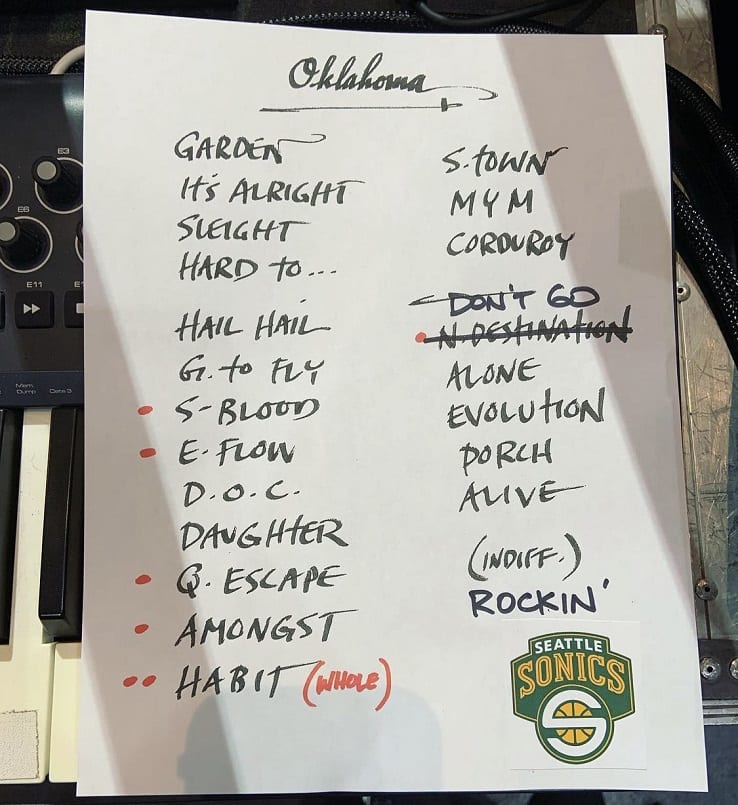 Oklahoma
GARDEN
It's ALRIGHT
SLEIGHT
HARD to...
HAIL HAIL
G. to FLY
S-BLOOD
E. FLOW
D.O.C.
DAUGHTER
Q. ESCAPE
AMONGST
HABIT (WHOLE)
S. TOWN
MYM
CORDUROY
DON'T GO
N. DESTINATION
ALONE
EVOLUTION
PORCH
ALIVE
(INDIFF.)
ROCKIN'
SEATTLE
SONICS
E3
E6
E11
Mem. Dump
Data 3